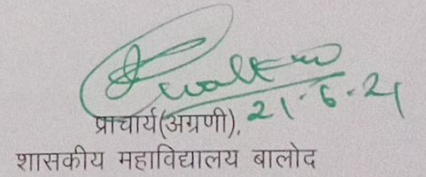 21.6.21
प्राचार्य(अग्रणी),
शासकीय महाविद्यालय बालोद